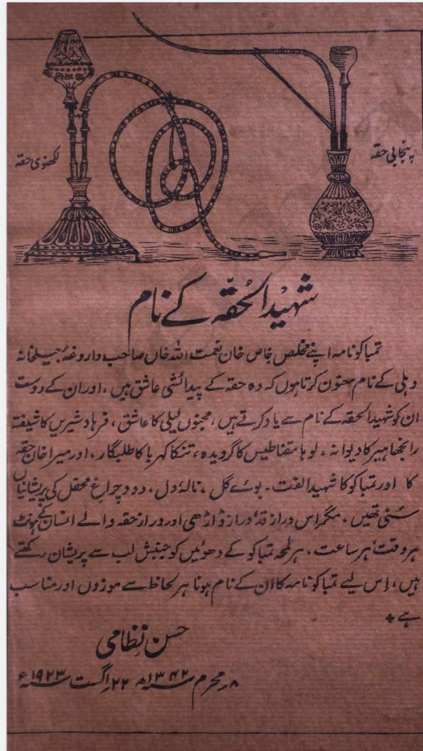 لکھنوی حقہ
پنجابی حقہ
شہید الحُقّہ کے نام
تمباکو نامہ اپنے مخلص خاص خان نعمت اللہ خاں صاحب داروغۂ جیلخانہ
دہلی کے نام معنون کرتا ہوں کہ وہ حقہ کے پیدائشی عاشق ہیں، اور ان کے دوست
ان کو شہید الحقہ کے نام سے یاد کرتے ہیں، مجنوں لیلیٰ کا عاشق، فرہاد شیریں کا شیفتہ
رانجھا ہیر کا دیوانہ، لوہا مقناطیس کا گرویدہ، تنکا کہربا کا طلبگار، اور میرا خان حقہ
کا اور تمباکو کا شہید الفت۔ بوئے گل، نالۂ دل، دودِ چراغ محفل کی پریشانیاں
سُنی تھیں، مگر اس دراز قد، دراز ڈاڑھی اور دراز حقہ والے انسان کے ہونٹ
ہر وقت ہر ساعت، ہر لمحہ تمباکو کے دھوئیں کو جنبش لب سے پریشان رکھتے
ہیں، اِس لیے تمباکو نامہ کا ان کے نام ہونا ہر لحاظ سے موزوں اور مناسب
ہے *
حسن نظامی
۸ محرم سنہ ۱۳۴۲ھ ۲۲ اگست سنہ ۱۹۲۳ء